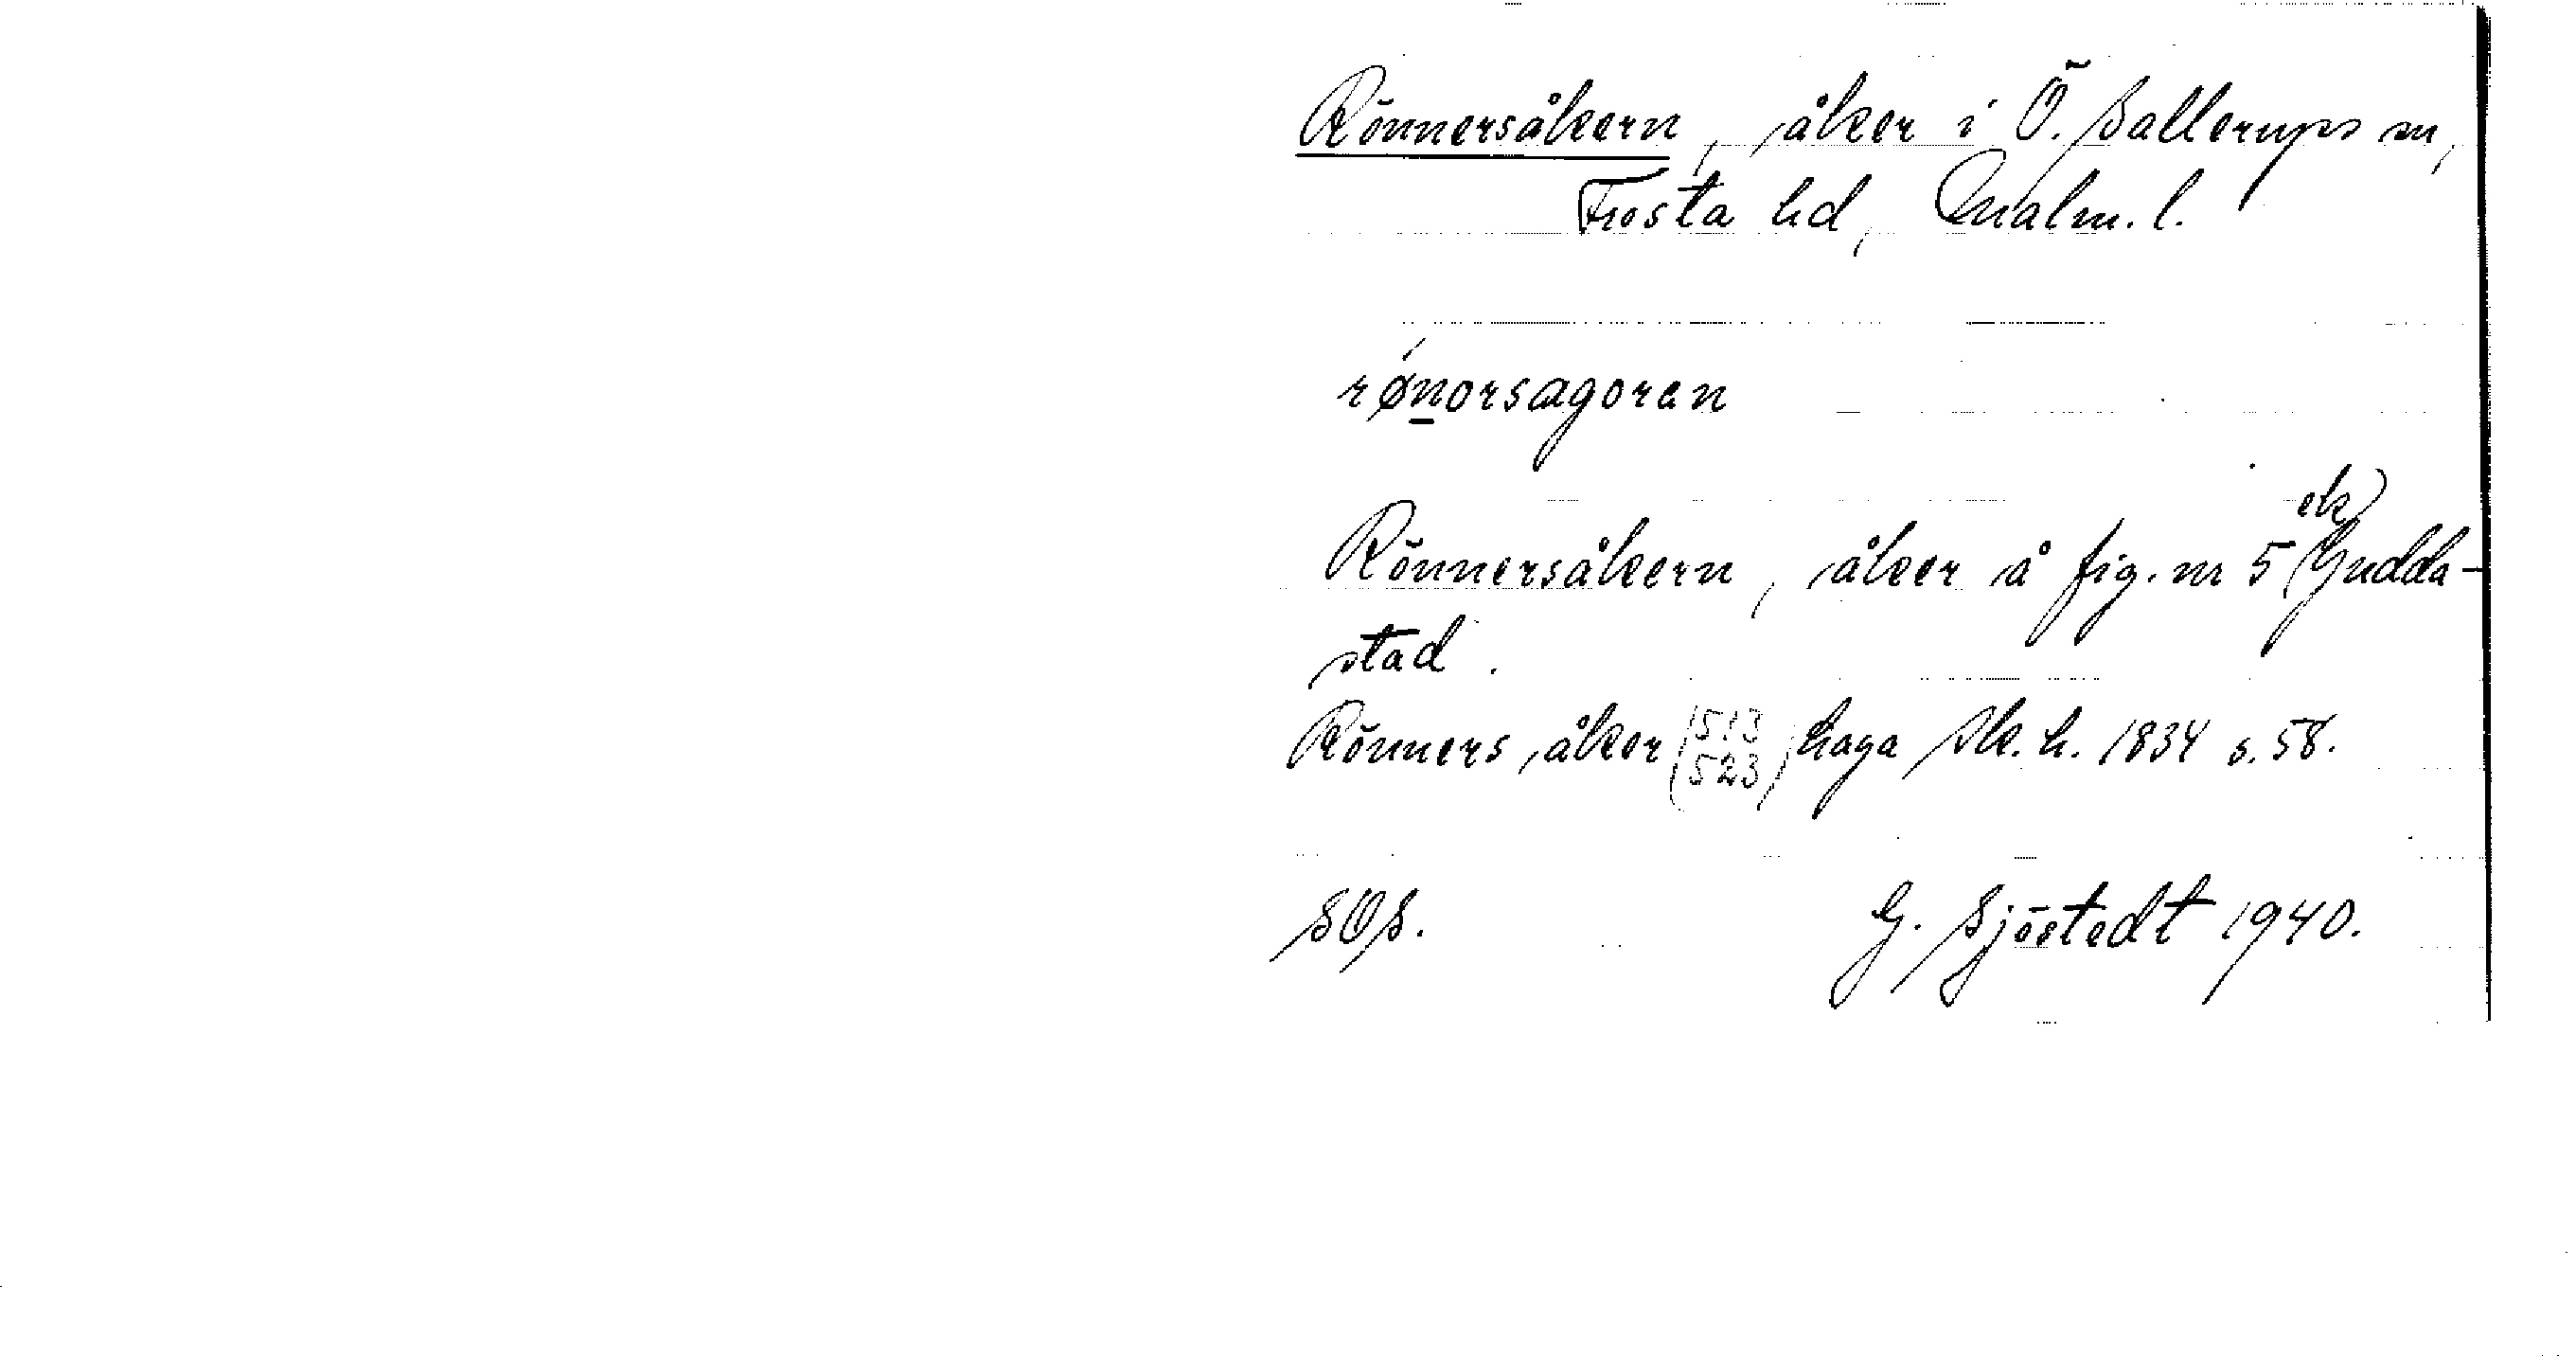 Rönnersåkern, åker i Ö. Sallerups sn,
Frosta hd, Malm. l.
rønorsagoren
Rönnersåkern, åker å fig. nr 5 (ek) Gudda-
stad.
Rönners åker (513 523) haga Sk. h. 1834 s. 58.
SOS. G. Sjöstedt 1940.